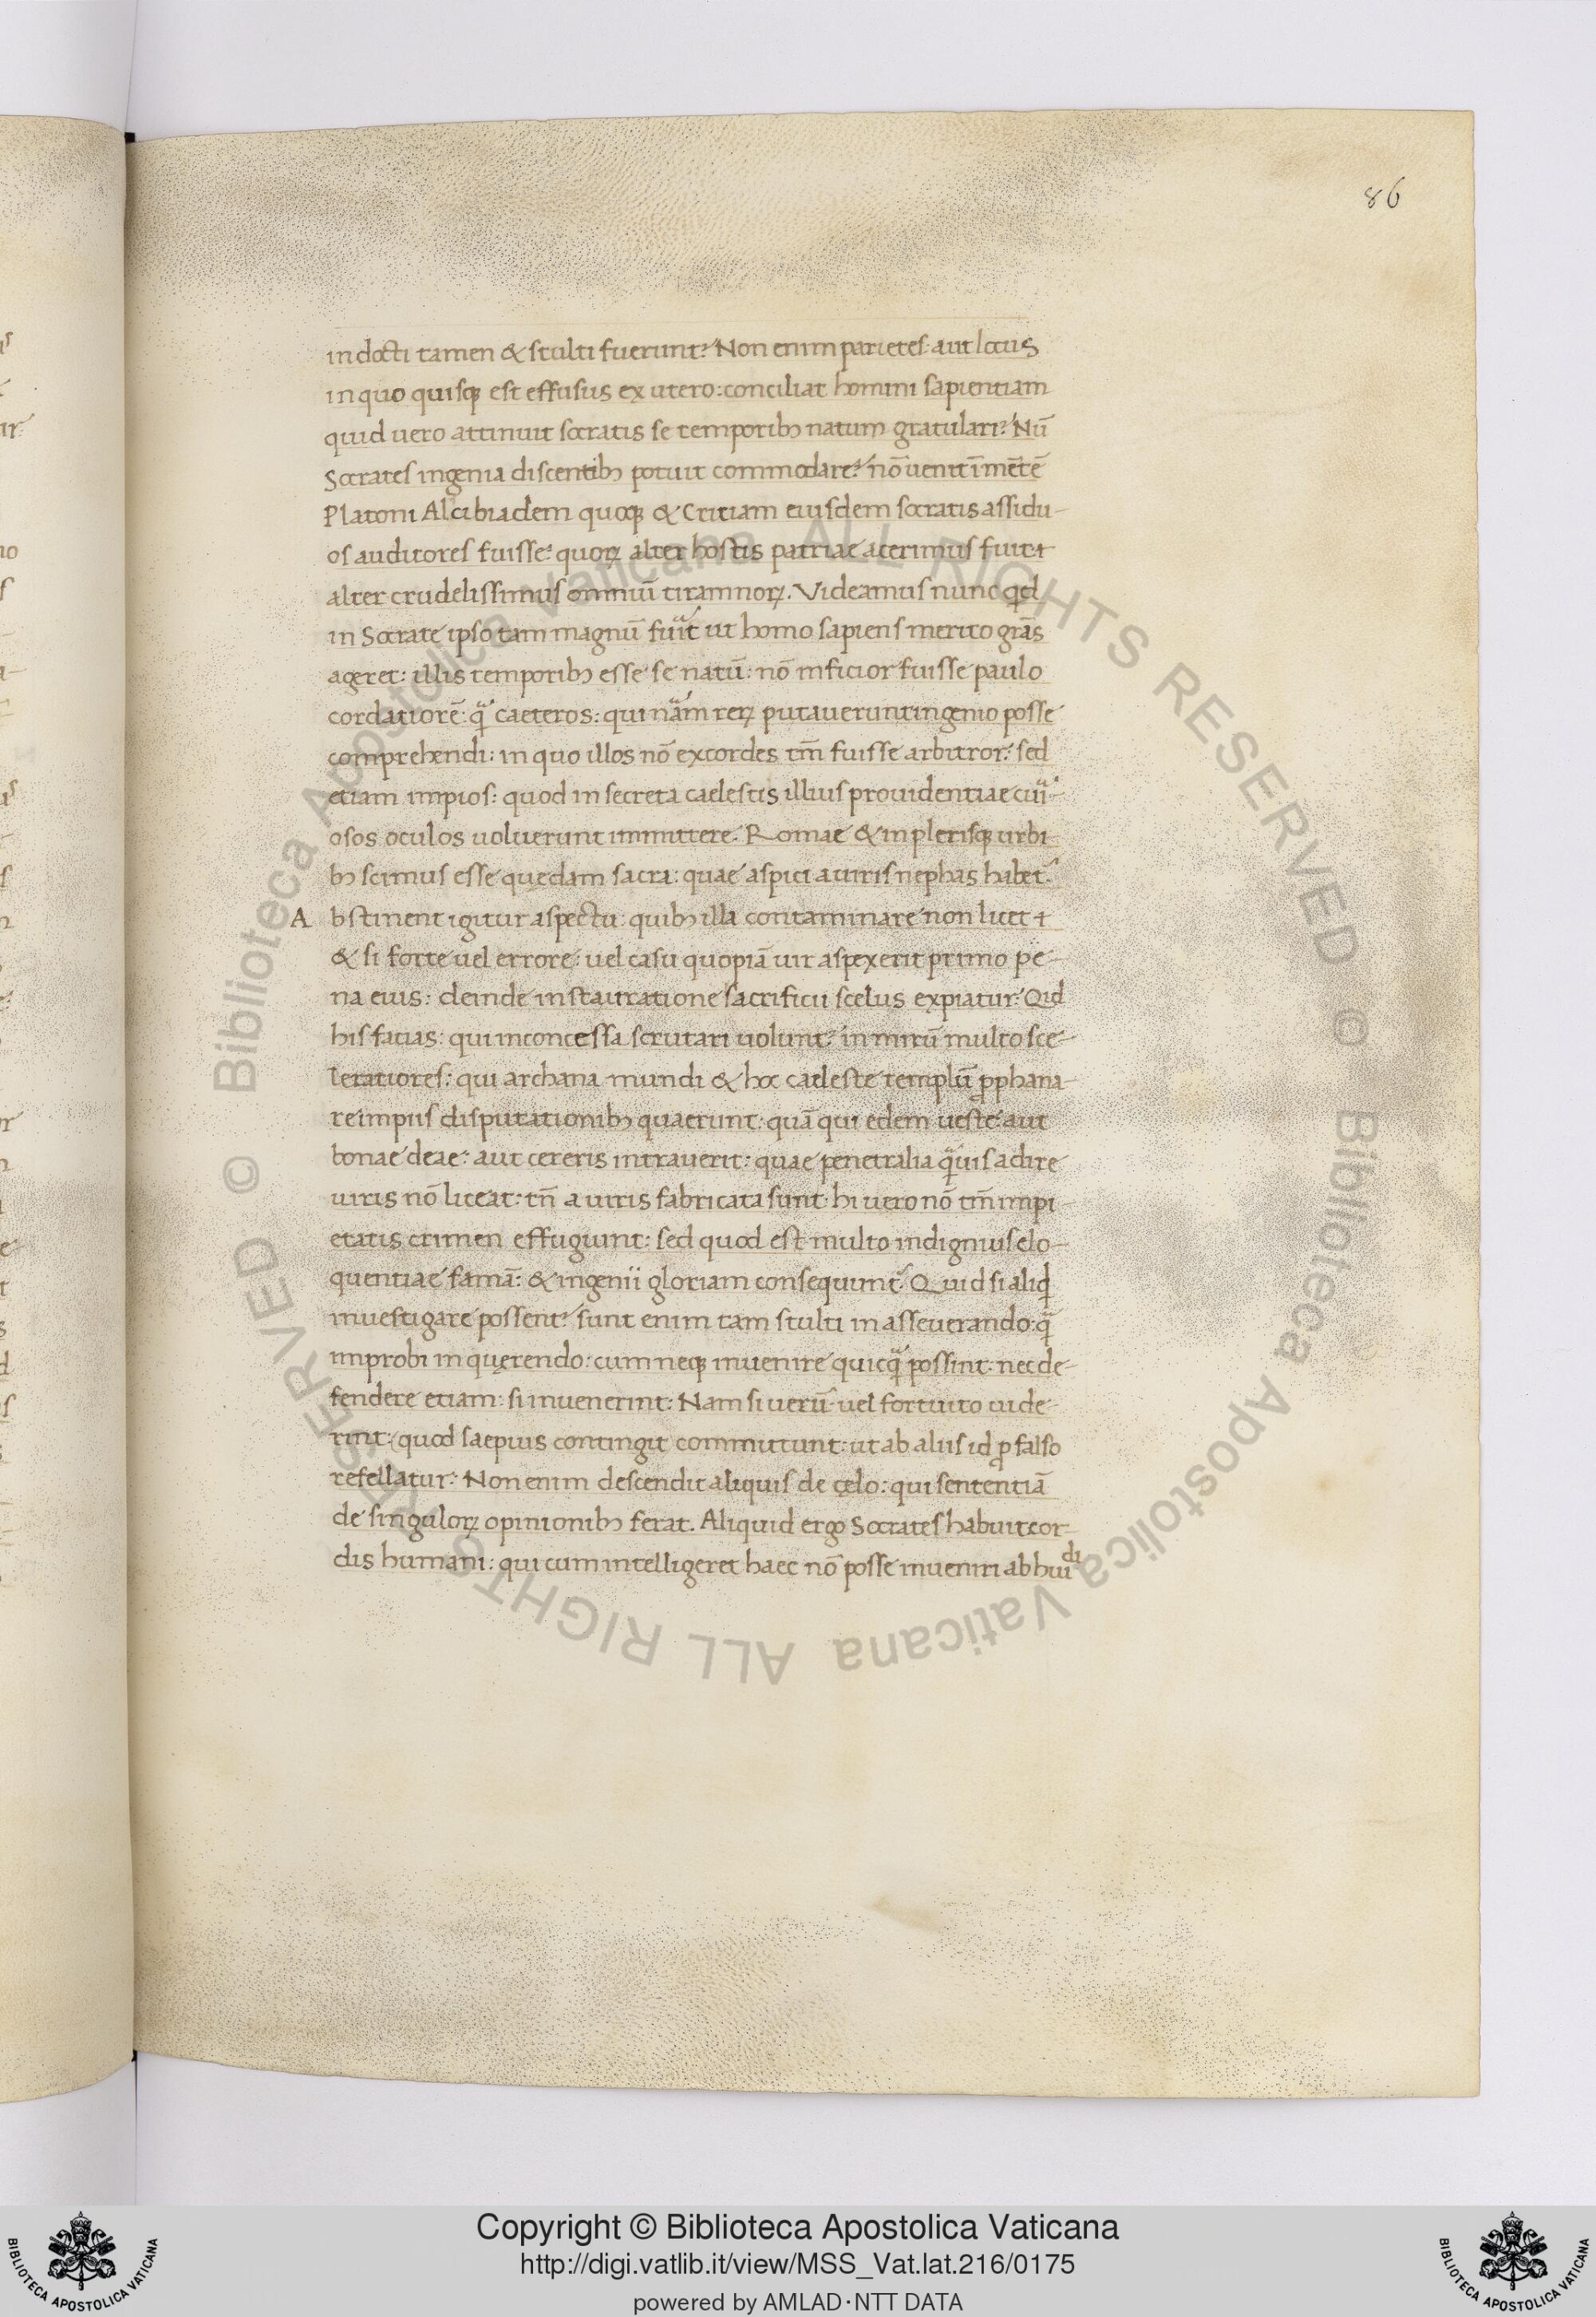 86
indocti tamen & stulti fuerunt? Non enim parietes aut locus
in quo quisq; est effusus ex utero: conciliat homini sapientiam
quid uero attinuit socratis se temporib; natum gratulari? Nū
Socrates ingenia discentib; potuit commodare? nō uenit ī mētē
Platoni Alcibiadem quoq; & Critiam eiusdem socratis assidu-
os auditores fuisse? quoꝝ alter hostis patriae acerimus fuit
alter crudelissimus omniū tiramnoꝝ. Videamus nunc qid
in Socrate ipso tam magnū fuit ut homo sapiens merito grās
ageret: illis temporib; esse se natū: nō inficior fuisse paulo
cordatiorē: qᷓ caeteros: qui nāam reꝝ putauerunt ingenio posse
comprehendi: in quo illos nō excordes tm̄ fuisse arbitror: sed
etiam impios: quod in secreta caelestis illius prouidentiae cui-
osos oculos uoluerunt immittere. Romae & in plerisq; urbi
b; scimus esse quędam sacra: quae aspici a uiris nephas habet̃.
Abstinent igitur aspectu: quib; illa contaminare non licet
& si forte uel errore: uel casu quopiā uir aspexerit primo pe-
na eius: deinde instauratione sacrificii scelus expiatur: Qid
his facias: qui inconcessa scrutari uolunt? in mirū multo sce-
leratiores: qui archana mundi & hoc caeleste templū ꝓphana-
re impiis disputationib; quaerunt: quā qui edem ueste: aut
bonae deae: aut cereris intrauerit: quae penetralia qᷓuis adire
uiris nō liceat: tn̄ a uiris fabricata sunt: hi uero nō tm̄ impi-
etatis crimen effugiunt: sed quod est multo indignius elo-
quentiae famā: & ingenii gloriam consequunt̃. Quid si aliqd
inuestigare possent? sunt enim tam stulti in asseuerando: qᷓ
improbi in quęrendo: cum neq; inuenire quicqᷓ possint: nec de-
fendere etiam: si inuenerint: Nam si uerū uel fortuito uide-
rint: quod saepius contingit committunt: ut ab aliis id ꝓ falso
refellatur: Non enim descendit aliquis de cęlo: qui sententiā
de singuloꝝ opinionib; ferat. Aliquid ergo Socrates habuit cor-
dis humani: qui cum intelligeret haec nō posse inueniri ab hui
di
© Biblioteca Apostolica Vaticana ALL RIGHTS RESERVED © Biblioteca Apostolica Vaticana ALL RIGHTS RESERVED
Copyright © Biblioteca Apostolica Vaticana
http://digi.vatlib.it/view/MSS_Vat.lat.216/0175
powered by AMLAD·NTT DATA
BIBLIOTECA APOSTOLICA VATICANA
BIBLIOTECA APOSTOLICA VATICANA